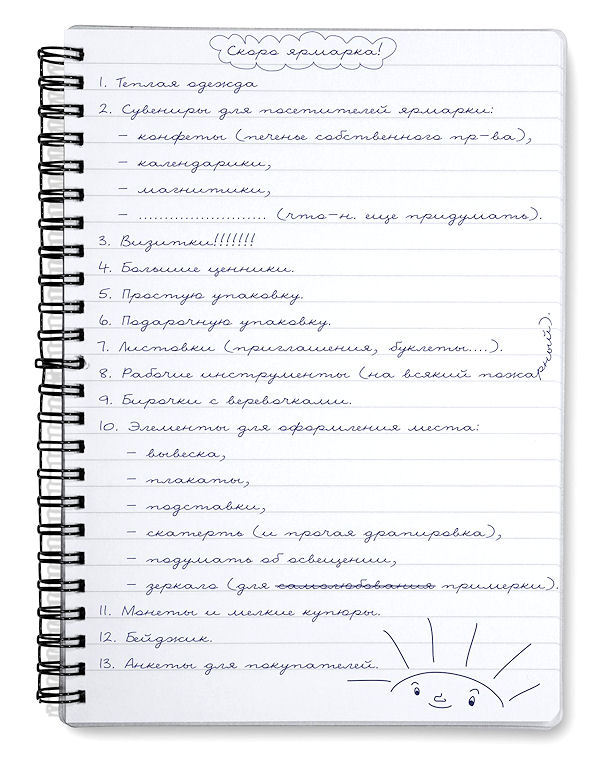 Скоро ярмарка!
1. Теплая одежда
2. Сувениры для посетителей ярмарки:
– конфеты (печенье собственного пр-ва),
– календарики,
– магнитики,
– ........................ (что-н. еще придумать).
3. Визитки!!!!!!!
4. Большие ценники.
5. Простую упаковку.
6. Подарочную упаковку.
7. Листовки (приглашения, буклеты....).
8. Рабочие инструменты (на всякий пожарный).
9. Бирочки с веревочками.
10. Элементы для оформления места:
– вывеска,
– плакаты,
– подставки,
– скатерть (и прочая драпировка),
– подумать об освещении,
– зеркало (для самолюбования примерки).
11. Монеты и мелкие купюры.
12. Бейджик.
13. Анкеты для покупателей.